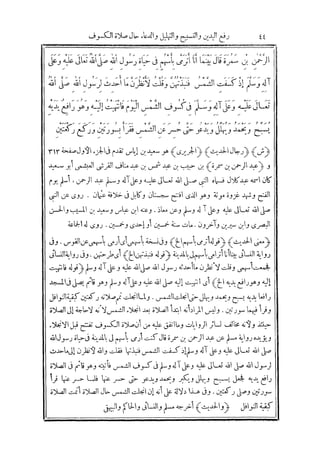 ٤٤ رفع اليدين والتسبيح والتهليل والدعاء، حال صلاة الكسوف
الرحمن بن سمرة قال بينما أنا أترمى بأسهم في حياة رسول الله صلى الله تعالى عليه وعلى
آله وسلم إذ كسفت الشمس فنبذتهن وقلت لأنظرن ما أحدث لرسول الله صلى الله
تعالى عليه وعلى آله وسلم في كسوف الشمس اليوم فانتهيت إليه وهو رافع يديه
يسبح ويحمد ويدعو حتى حسر عن الشمس فقرأ بسورتين وركع ركعتين
﴿ش﴾ ﴿رجال الحديث﴾ ﴿الجريري﴾ هو سعيد بن إياس تقدم في الجزء الأول صفحة ٣١٣
و ﴿عبد الرحمن بن سمرة﴾ بن حبيب بن عبد شمس بن عبد مناف القرشي العبشمي أبو سعيد
كان اسمه عبد كلال فسماه النبي صلى الله تعالى عليه وعلى آله وسلم عبد الرحمن. أسلم يوم
الفتح وشهد غزوة مؤتة وهو الذي افتتح سجستان وكابل في خلافة عثمان. روى عن النبي
صلى الله تعالى عليه وعلى آله وسلم وعن معاذ. وعنه ابن عباس وسعيد بن المسيب والحسن
البصري وابن سيرين وآخرون. مات سنة خمسين أو إحدى وخمسين. روى له الجماعة
﴿معنى الحديث﴾ ﴿قوله أترمى بأسهم الخ﴾ وفي نسخة بأسهمي أي أرمي بأسهمي عن القوس. وفي
رواية النسائي بينا أنا أترامى بأسهم لي بالمدينة ﴿قوله فنبذتهن الخ﴾ أي طرحتهن. وفي رواية النسائي
فجمعت أسهمي وقلت لأنظرن ما أحدثه رسول الله صلى الله عليه وعلى آله وسلم ﴿قوله فانتهيت
إليه وهو رافع يديه الخ﴾ أي انتهيت إليه صلى الله عليه وعلى آله وسلم وهو قائم يصلي في المسجد
رافعا يديه يسبح ويحمد ويهلل حتى انجلت الشمس. ولما انجلت تمم صلاته ركعتين كبقية النوافل
وقرأ فيهما سورتين. وليس المراد أنه ابتدأ الصلاة بعد انجلاء الشمس لأنه لا حاجة إلى الصلاة
حينئذ ولأنه مخالف لسائر الروايات وما اتفق عليه من أن صلاة الكسوف تفتتح قبل الانجلاء.
ويؤيده رواية مسلم عن عبد الرحمن بن سمرة قال كنت أرتمي بأسهم لي بالمدينة في حياة رسول الله
صلى الله تعالى عليه وعلى آله وسلم إذ كسفت الشمس فنبذتها فقلت والله لأنظرن إلى ما حدث
لرسول الله صلى الله تعالى عليه وعلى آله وسلم في كسوف الشمس فأتيته وهو قائم في الصلاة
رافع يديه فجعل يسبح ويهلل ويكبر ويحمد ويدعو حتى حسر عنها فلما حسر عنها قرأ
سورتين وصلى ركعتين. وفي هذا دلالة على أنه إن انجلت الشمس حال الصلاة أتمت الصلاة
كبقية النوافل ﴿والحديث﴾ أخرجه مسلم والنسائي والحاكم والبيهقي